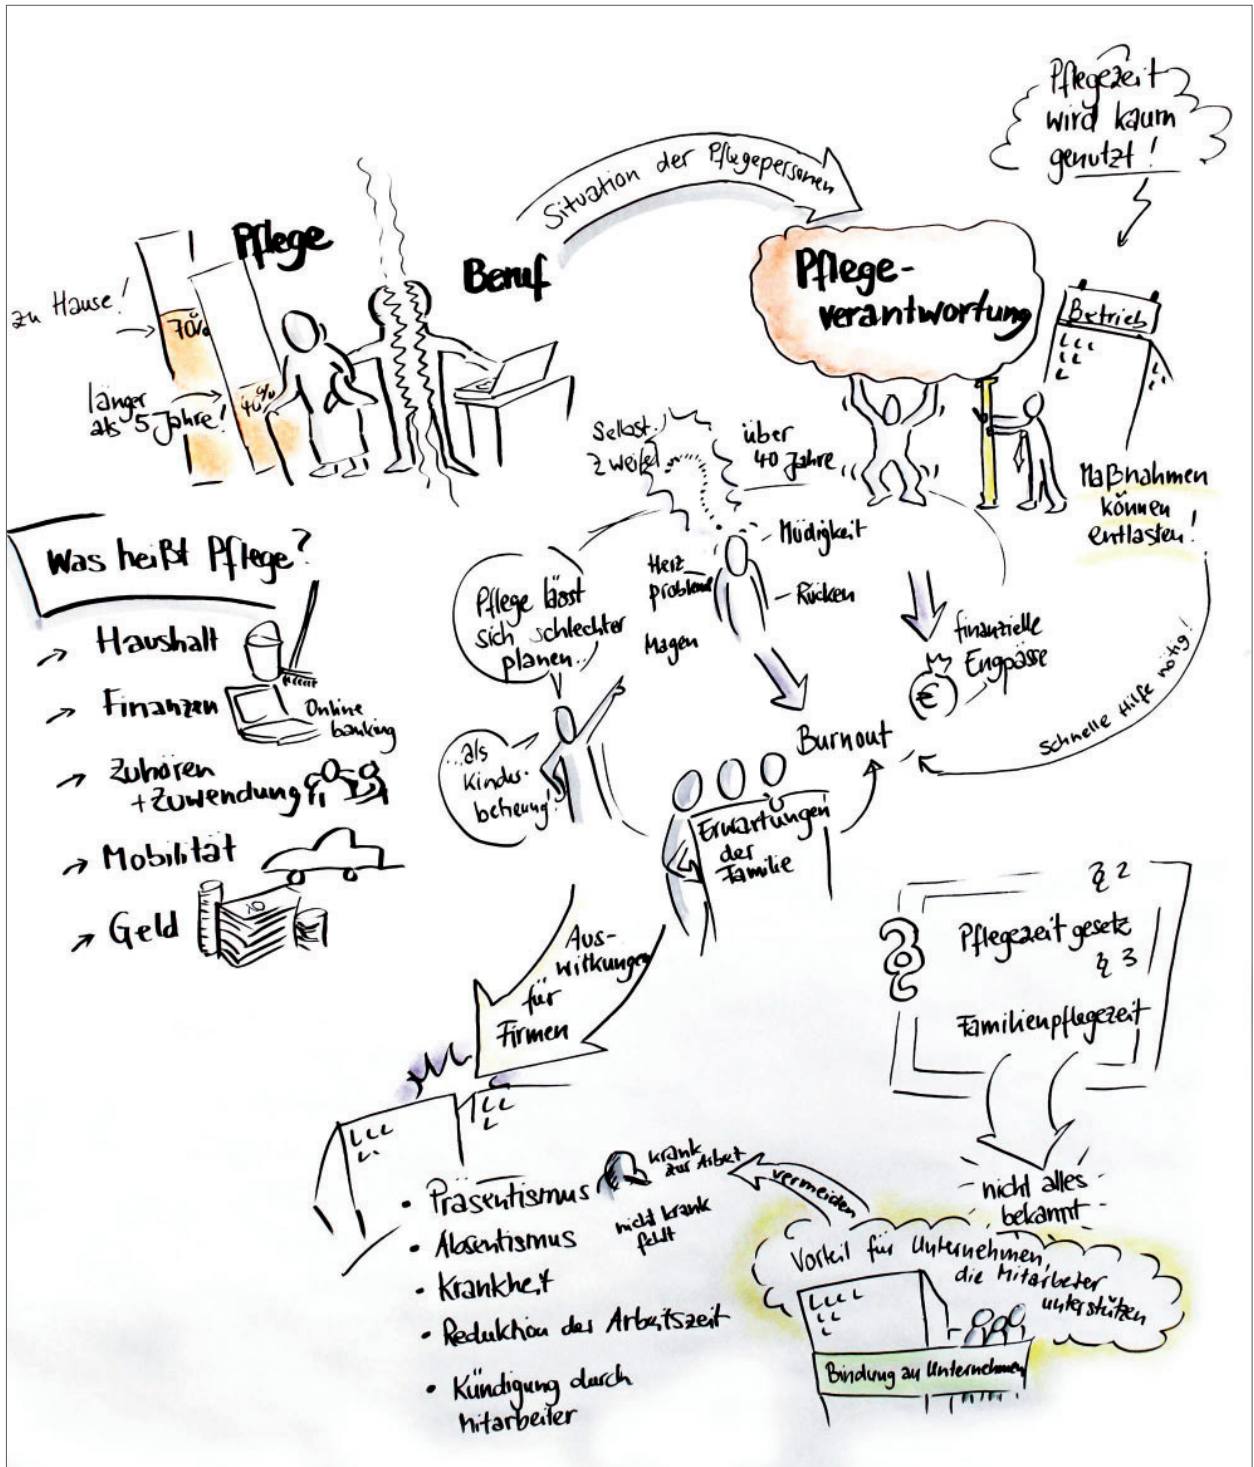 Pflegezeit
wird kaum
genutzt!
Situation der Pflegepersonen
Pflege
Beruf
zu Hause!
70%
länger
als 5 Jahre!
40%
Pflege-
verantwortung
Betrieb
Maßnahmen
können
entlasten!
Selbst-
zweifel
über
40 Jahre
Müdigkeit
Herz
probleme
Rücken
Magen
Was heißt Pflege?
Haushalt
Finanzen
Online
banking
Zuhören
+ Zuwendung
Mobilität
Geld
10
Pflege lässt
sich schlechter
planen...
...als
Kinder-
betreuung!
finanzielle
Engpässe
€
Burnout
Schnelle Hilfe nötig!
Erwartungen
der
Familie
Aus-
wirkungen
für
Firmen
§ 2
Pflegezeitgesetz
§ 3
Familienpflegezeit
nicht alles
bekannt
• Präsentismus
krank
zur Arbeit
• Absentismus
nicht krank
fehlt
• Krankheit
• Reduktion der Arbeitszeit
• Kündigung durch
Mitarbeiter
vermeiden
Vorteil für Unternehmen,
die Mitarbeiter
unterstützen
Bindung an Unternehmen